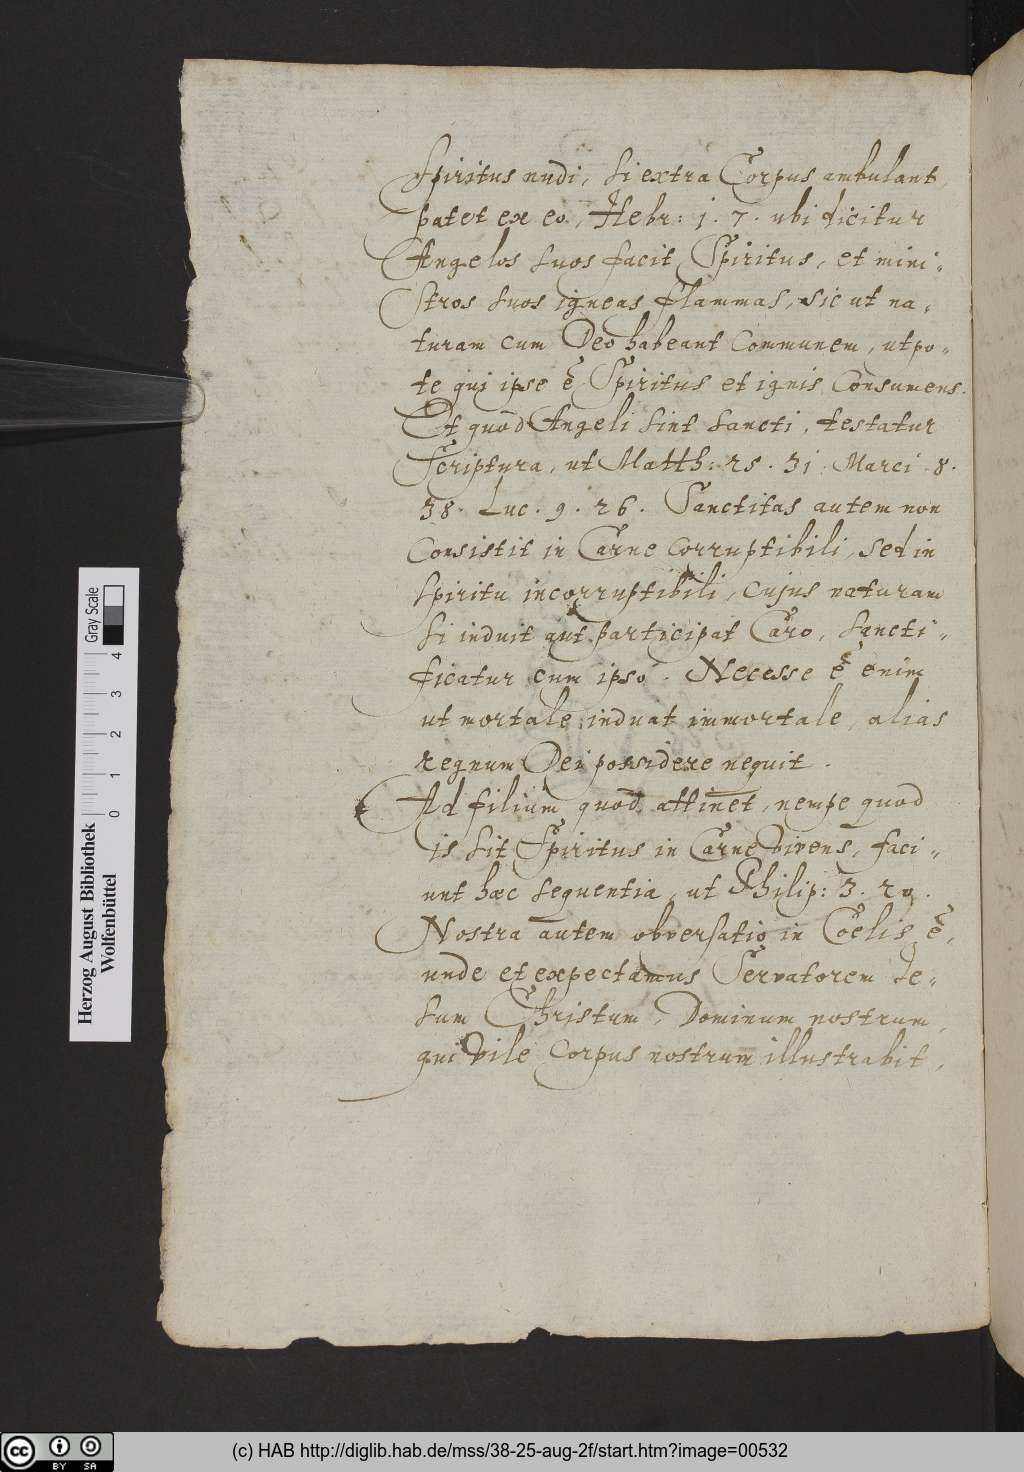 Spiritus nudi, si extra Corpus ambulant,
patet ex eo, Hebr: 1. 7. ubi dicitur
Angelos suos facit Spiritus, et mini-
stros suos igneas flammas, sic ut na-
turam cum Deo habeant Communem, utpo-
te qui ipse ẽ Spiritus et ignis Consumens.
Et quod Angeli sint sancti, testatur
Scriptura, ut Matth: 25. 31. Marci. 8.
38. Luc. 9. 26. Sanctitas autem non
Consistit in Carne Corruptibili, sed in
spiritu incorruptibili, cujus naturam
si induit aut participat Caro, sancti-
ficatur cum ipso. Necesse ẽ enim
ut mortale induat immortale, alias
regnum Dei possidere nequit.
Ad filium quod attinet, nempe quod
is sit Spiritus in Carne vivens, faci-
unt hæc sequentia, ut Philip: 3. 20.
Nostra autem obversatio in Coelis ẽ,
unde et expectamus Servatorem Je-
sum Christum, Dominum nostrum,
qui vile Corpus nostrum illustrabit,
Herzog August Bibliothek
Wolfenbüttel
0 1 2 3 4
Gray Scale
cc BY SA
(c) HAB http://diglib.hab.de/mss/38-25-aug-2f/start.htm?image=00532